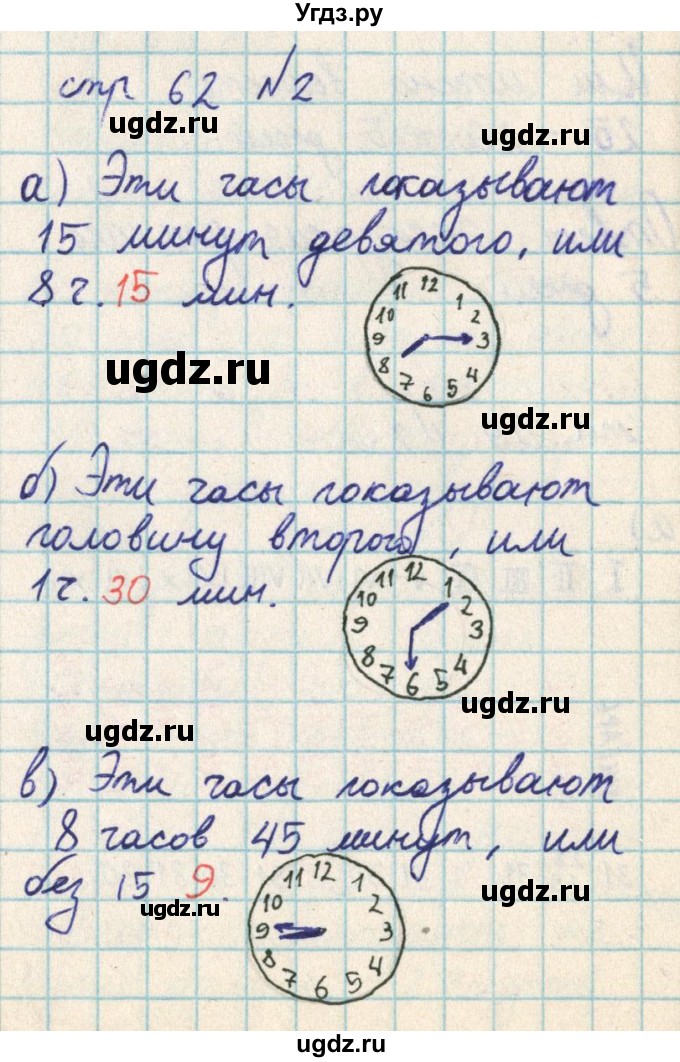 Угдз.ру
стр. 62 №2
ugdz.ru
ugdz.ru
а) Эти часы показывают
15 минут девятого, или
8 ч. 15 мин.
11 12 1
10 2
9 3
8 4
7 6 5
ugdz.ru
ugdz.ru
б) Эти часы показывают
половину второго, или
1 ч. 30 мин.
11 12 1
10 2
9 3
8 4
7 6 5
ugdz.ru
ugdz.ru
в) Эти часы показывают
8 часов 45 минут, или
без 15 9.
11 12 1
10 2
9 3
8 4
7 6 5
ugdz.ru
ugdz.ru
ugdz.ru